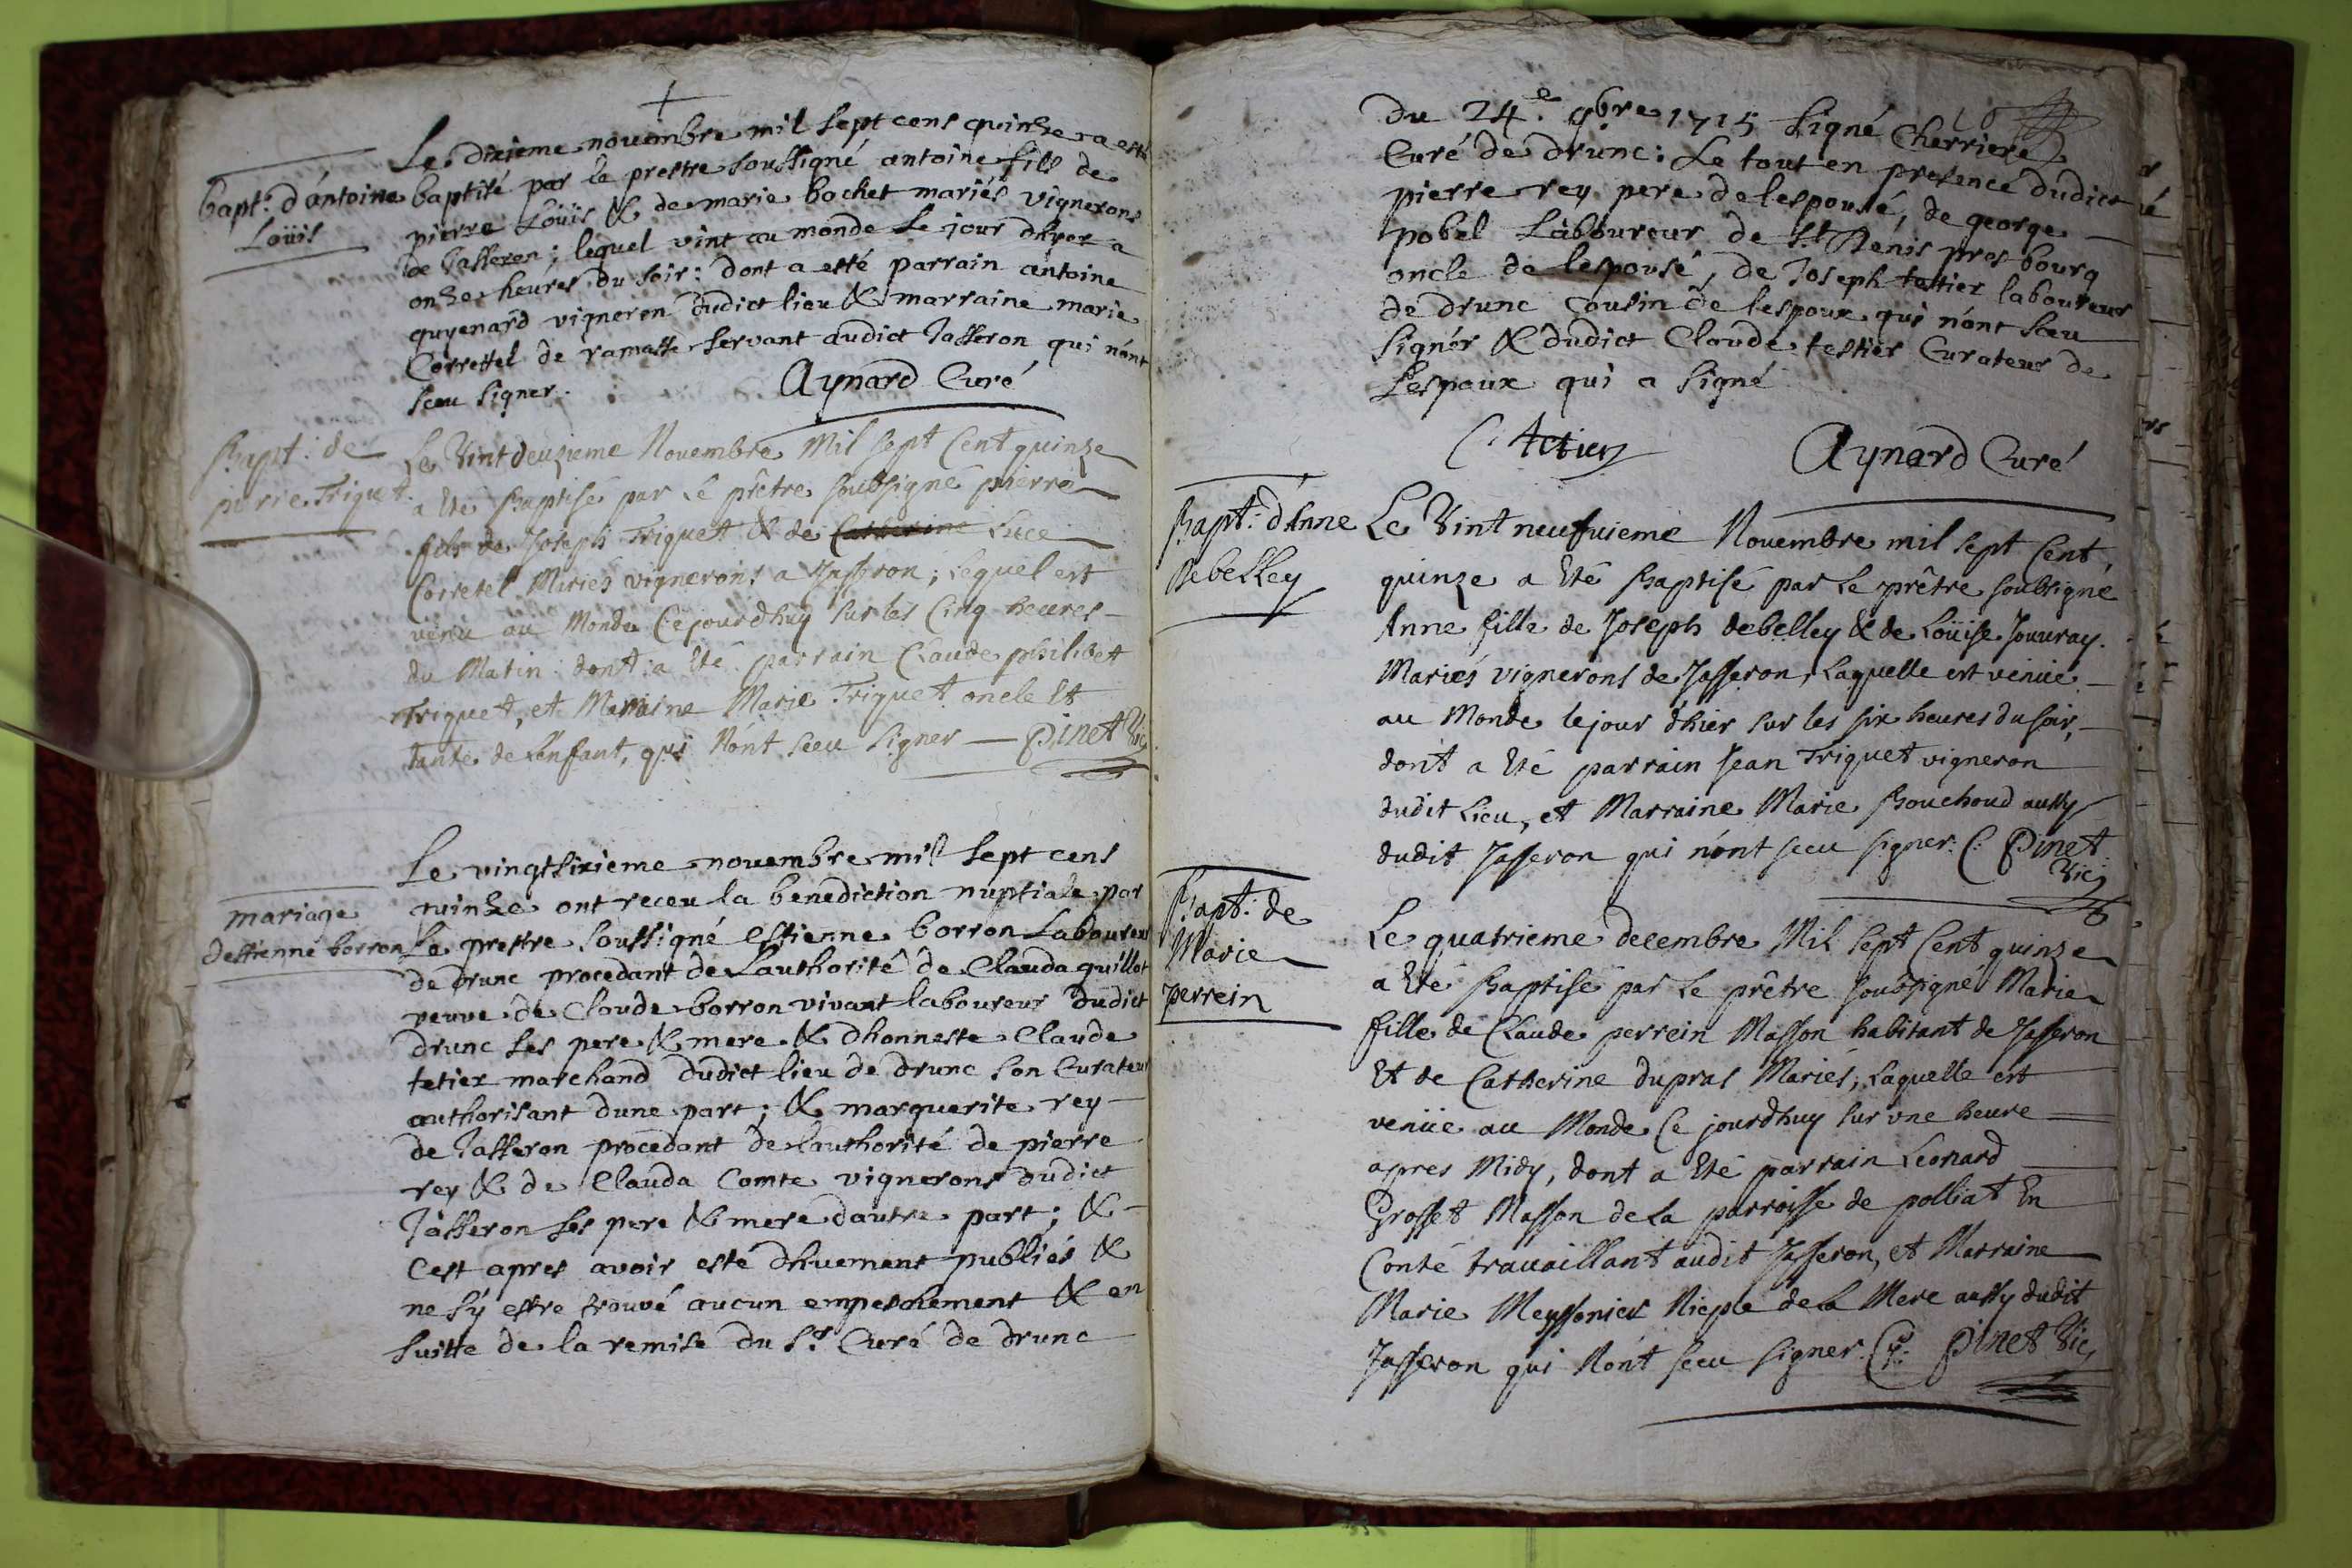 Le dixieme novembre mil sept cens quinze a esté
bapt. d'antoine
Loüis
baptisé par le prestre soussigné antoine fils de
pierre Loüis & de marie bochet mariés vignerons
de Jasseron; lequel vint au monde le jour dhyer a
onze heures du soir: dont a esté parrain antoine
guyenard vigneron dudict lieu & marraine marie
Correttel de ramasse servant audict Jasseron qui n'ont
sceu signer.
Aynard Curé
Bapt: de
pierre Triquet.
Le Vint deuzieme Nouembre Mil sept Cent quinze
a Eté Baptisé par Le prêtre soubsigné pierre
fils de Joseph Triquet & de Catherine Luce
Corretel Mariés vignerons a Jasseron; Lequel est
venu au Monde Ce jourdhuy sur les Cinq heures
du Matin: dont a Eté parrain Claude philibet
Triquet, et Marraine Marie Triquet oncle Et
tante de L'enfant, qui N'ont sceu signer Pinet Vic,
mariage
d'estienne borron
Le vingtsixieme novembre mil sept cens
quinze ont receu la benediction nuptiale par
Le prestre soussigné estienne borron Laboureur
de drunc procedant de Lauthorité de Clauda guillot
veuve de Claude borron vivant laboureur dudict
drunc ses pere & mere & dhonneste Claude
tetier marchand dudict lieu de drunc son Curateur
authorisant dune part; & marguerite rey
de Jasseron procedant de l'authorité de pierre
rey & de Clauda Comte vignerons dudict
Jasseron ses pere & mere dautre part; &
Cest apres avoir esté dhuement publiés &
ne s'y estre trouvé aucun empeschement & en
suitte de la remise du Sr. Curé de drunc
du 24.e 9bre 1715 signé Cherriere
Curé de drunc: Le tout en presence dudict
pierre rey pere de lespousé, de george
pobel Laboureur de St Denis pres bourg
oncle de lespousé, de Joseph tettier laboureur
de drunc cousin de lespoux qui n'ont sceu
signér & dudict Claude testier Curateur de
Lespoux qui a signé
C. tetier
Aynard Curé
Bapt: d'Anne
debelley
Le Vint neufuieme Nouembre mil sept Cent
quinze a Eté Baptisé par Le prêtre soubsigné
Anne fille de Joseph debelley & de Loüise Jouuray.
Mariés vignerons de Jasseron, Laquelle est venüe
au Monde le jour d'hier sur les six heures du soir,
dont a Eté parrain Jean Triquet vigneron
dudit Lieu, et Marraine Marie Bouchoud aussy
dudit Jasseron qui n'ont sceu signer. C: Pinet
Vic,
Bapt: de
Marie
perrein
Le quatrieme decembre Mil sept Cent quinze
a Eté Baptisé par Le prêtre soubsigné Marie
fille de Claude perrein Masson habitant de Jasseron
Et de Catherine dupras Mariés, Laquelle est
venüe au Monde Ce jourdhuy sur vne heure
apres Midy, dont a Eté parrain Leonard
Grosset Masson de La parroisse de polliat En
Conté trauaillant audit Jasseron, et Marraine
Marie Meyssonier Niepce de La Mere aussy dudit
Jasseron qui N'ont sceu signer. Pinet Vic,